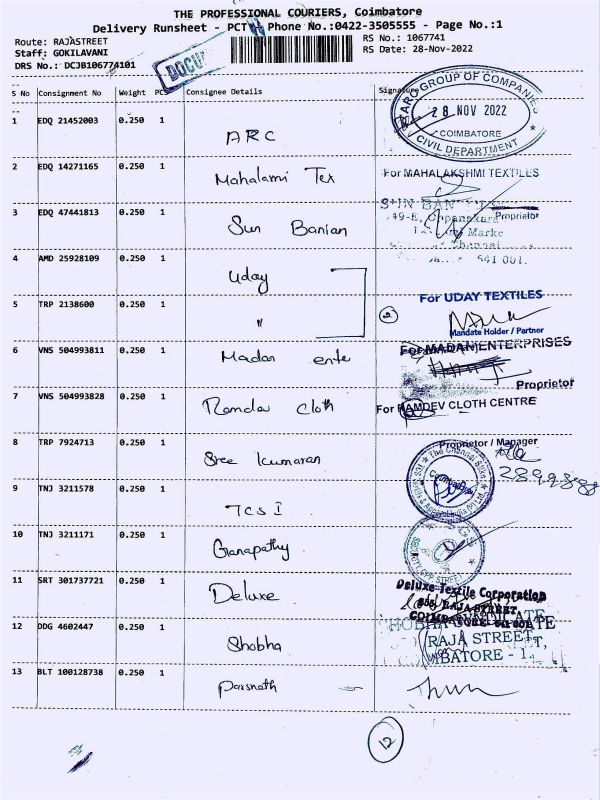 THE PROFESSIONAL COURIERS, Coimbatore
Delivery Runsheet - PCT Phone No.:0422-3505555 - Page No.:1
Route: RAJASTREET
RS No.: 1067741
Staff: GOKILAVANI
RS Date: 28-Nov-2022
DRS No.: DCJB106774101
DOCU
S No Consignment No Weight PCS Consignee Details Signature
1 EDQ 21452003 0.250 1 ARC
GROUP OF COMPANIES
28 NOV 2022
COIMBATORE
CIVIL DEPARTMENT
2 EDQ 14271165 0.250 1 Mahalami Tex
For MAHALAKSHMI TEXTILES
Proprietor
3 EDQ 47441813 0.250 1 Sun Banian
SUN BAN
641 001.
4 AMD 25928109 0.250 1 Uday
5 TRP 2138600 0.250 1 "
2
For UDAY TEXTILES
Mandate Holder / Partner
6 VNS 504993811 0.250 1 Madan ente
For MADAN ENTERPRISES
Proprietor
7 VNS 504993828 0.250 1 Ramdev cloth
For RAMDEV CLOTH CENTRE
Proprietor / Manager
8 TRP 7924713 0.250 1 Sree kumaran
9 TNJ 3211578 0.250 1 TCS I
10 TNJ 3211171 0.250 1 Ganapathy
11 SRT 301737721 0.250 1 Deluxe
Deluxe Textile Corporation
RAJA STREET,
12 DDG 4602447 0.250 1 Shobha
RAJA STREET,
13 BLT 100128738 0.250 1 Parsnath
12